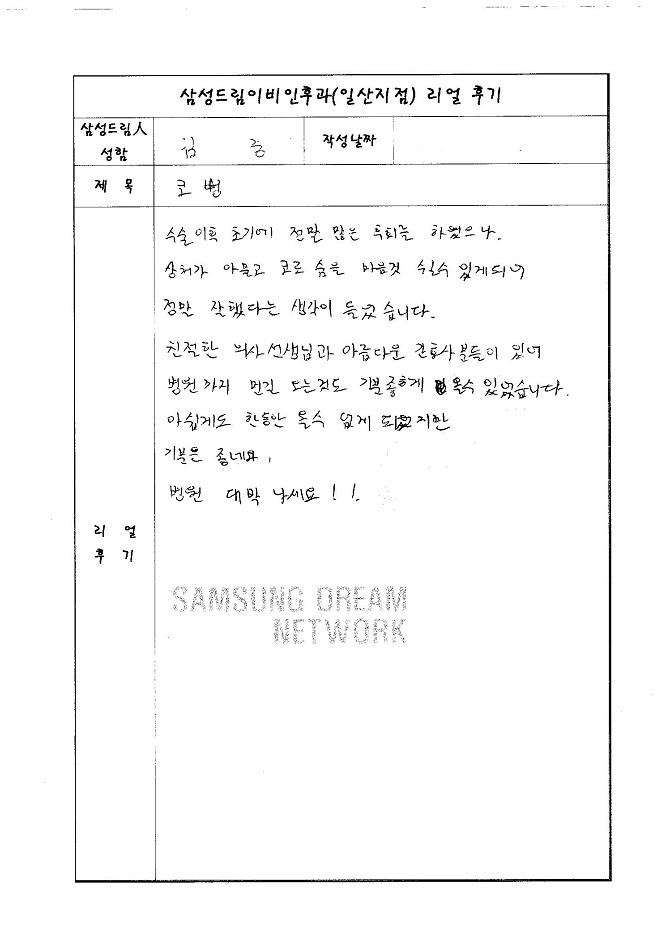 삼성드림이비인후과(일산지점) 리얼 후기
삼성드림人 성함 김 중 작성날짜
제 목 코병
수술이후 초기에 정말 많은 후회는 하였으나.
상처가 아물고 코로 숨을 마음것 쉬실수 있게되어
정말 잘했다는 생각이 들었습니다.
친절한 의사선생님과 아름다운 간호사분들이 있어
병원까지 먼길 오는것도 기분좋하게 올수 있었습니다.
아쉽게도 한동안 올수 없게 되었지만
기분은 좋네요,
병원 대박 나세요!!.
리 얼
후 기
SAMSUNG DREAM
NETWORK